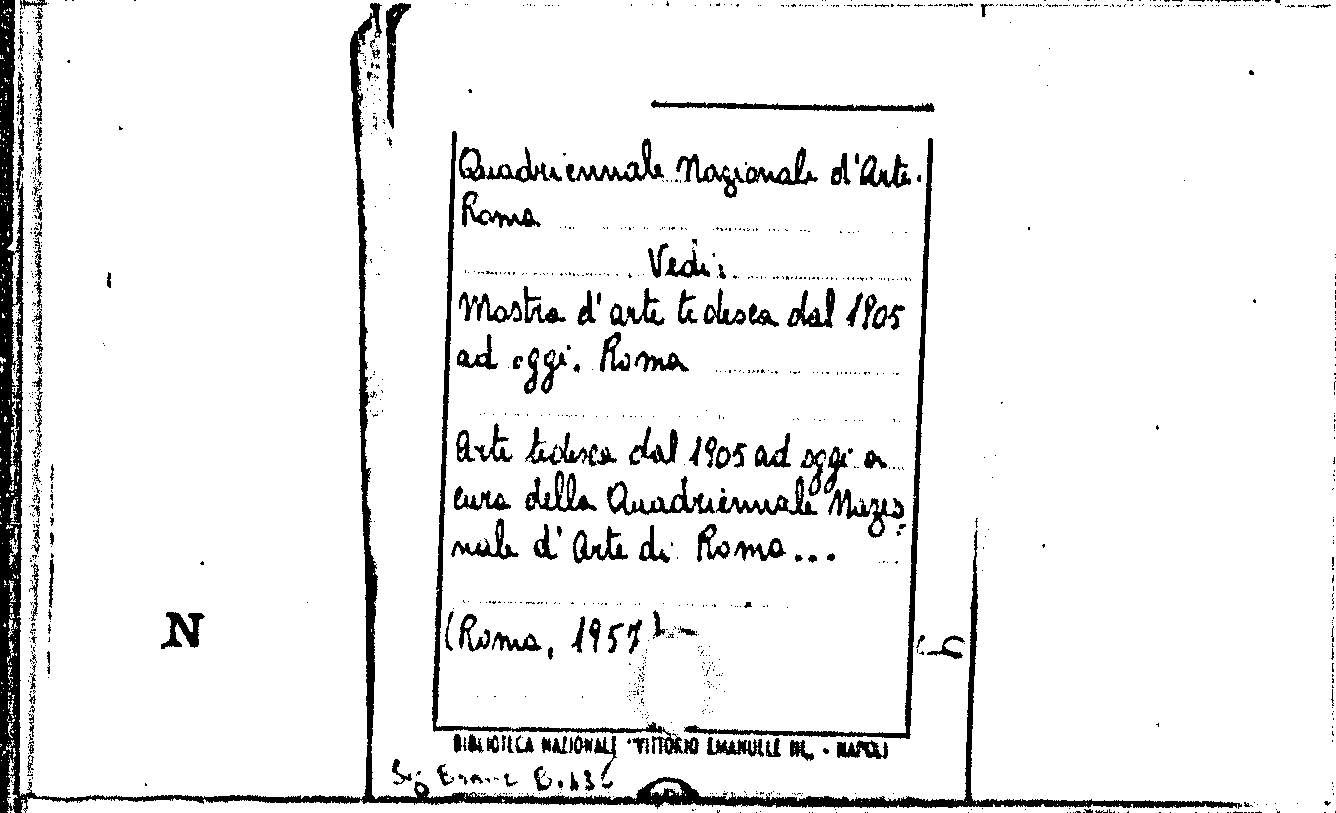 Quadriennale Nazionale d'Arte.
Roma
Vedi:
Mostra d'arte tedesca dal 1905
ad oggi. Roma
Arte tedesca dal 1905 ad oggi a
cura della Quadriennale Nazio=
nale d'Arte di Roma...
(Roma, 1957)
N
BIBLIOTECA NAZIONALE "VITTORIO EMANUELE III" - NAPOLI